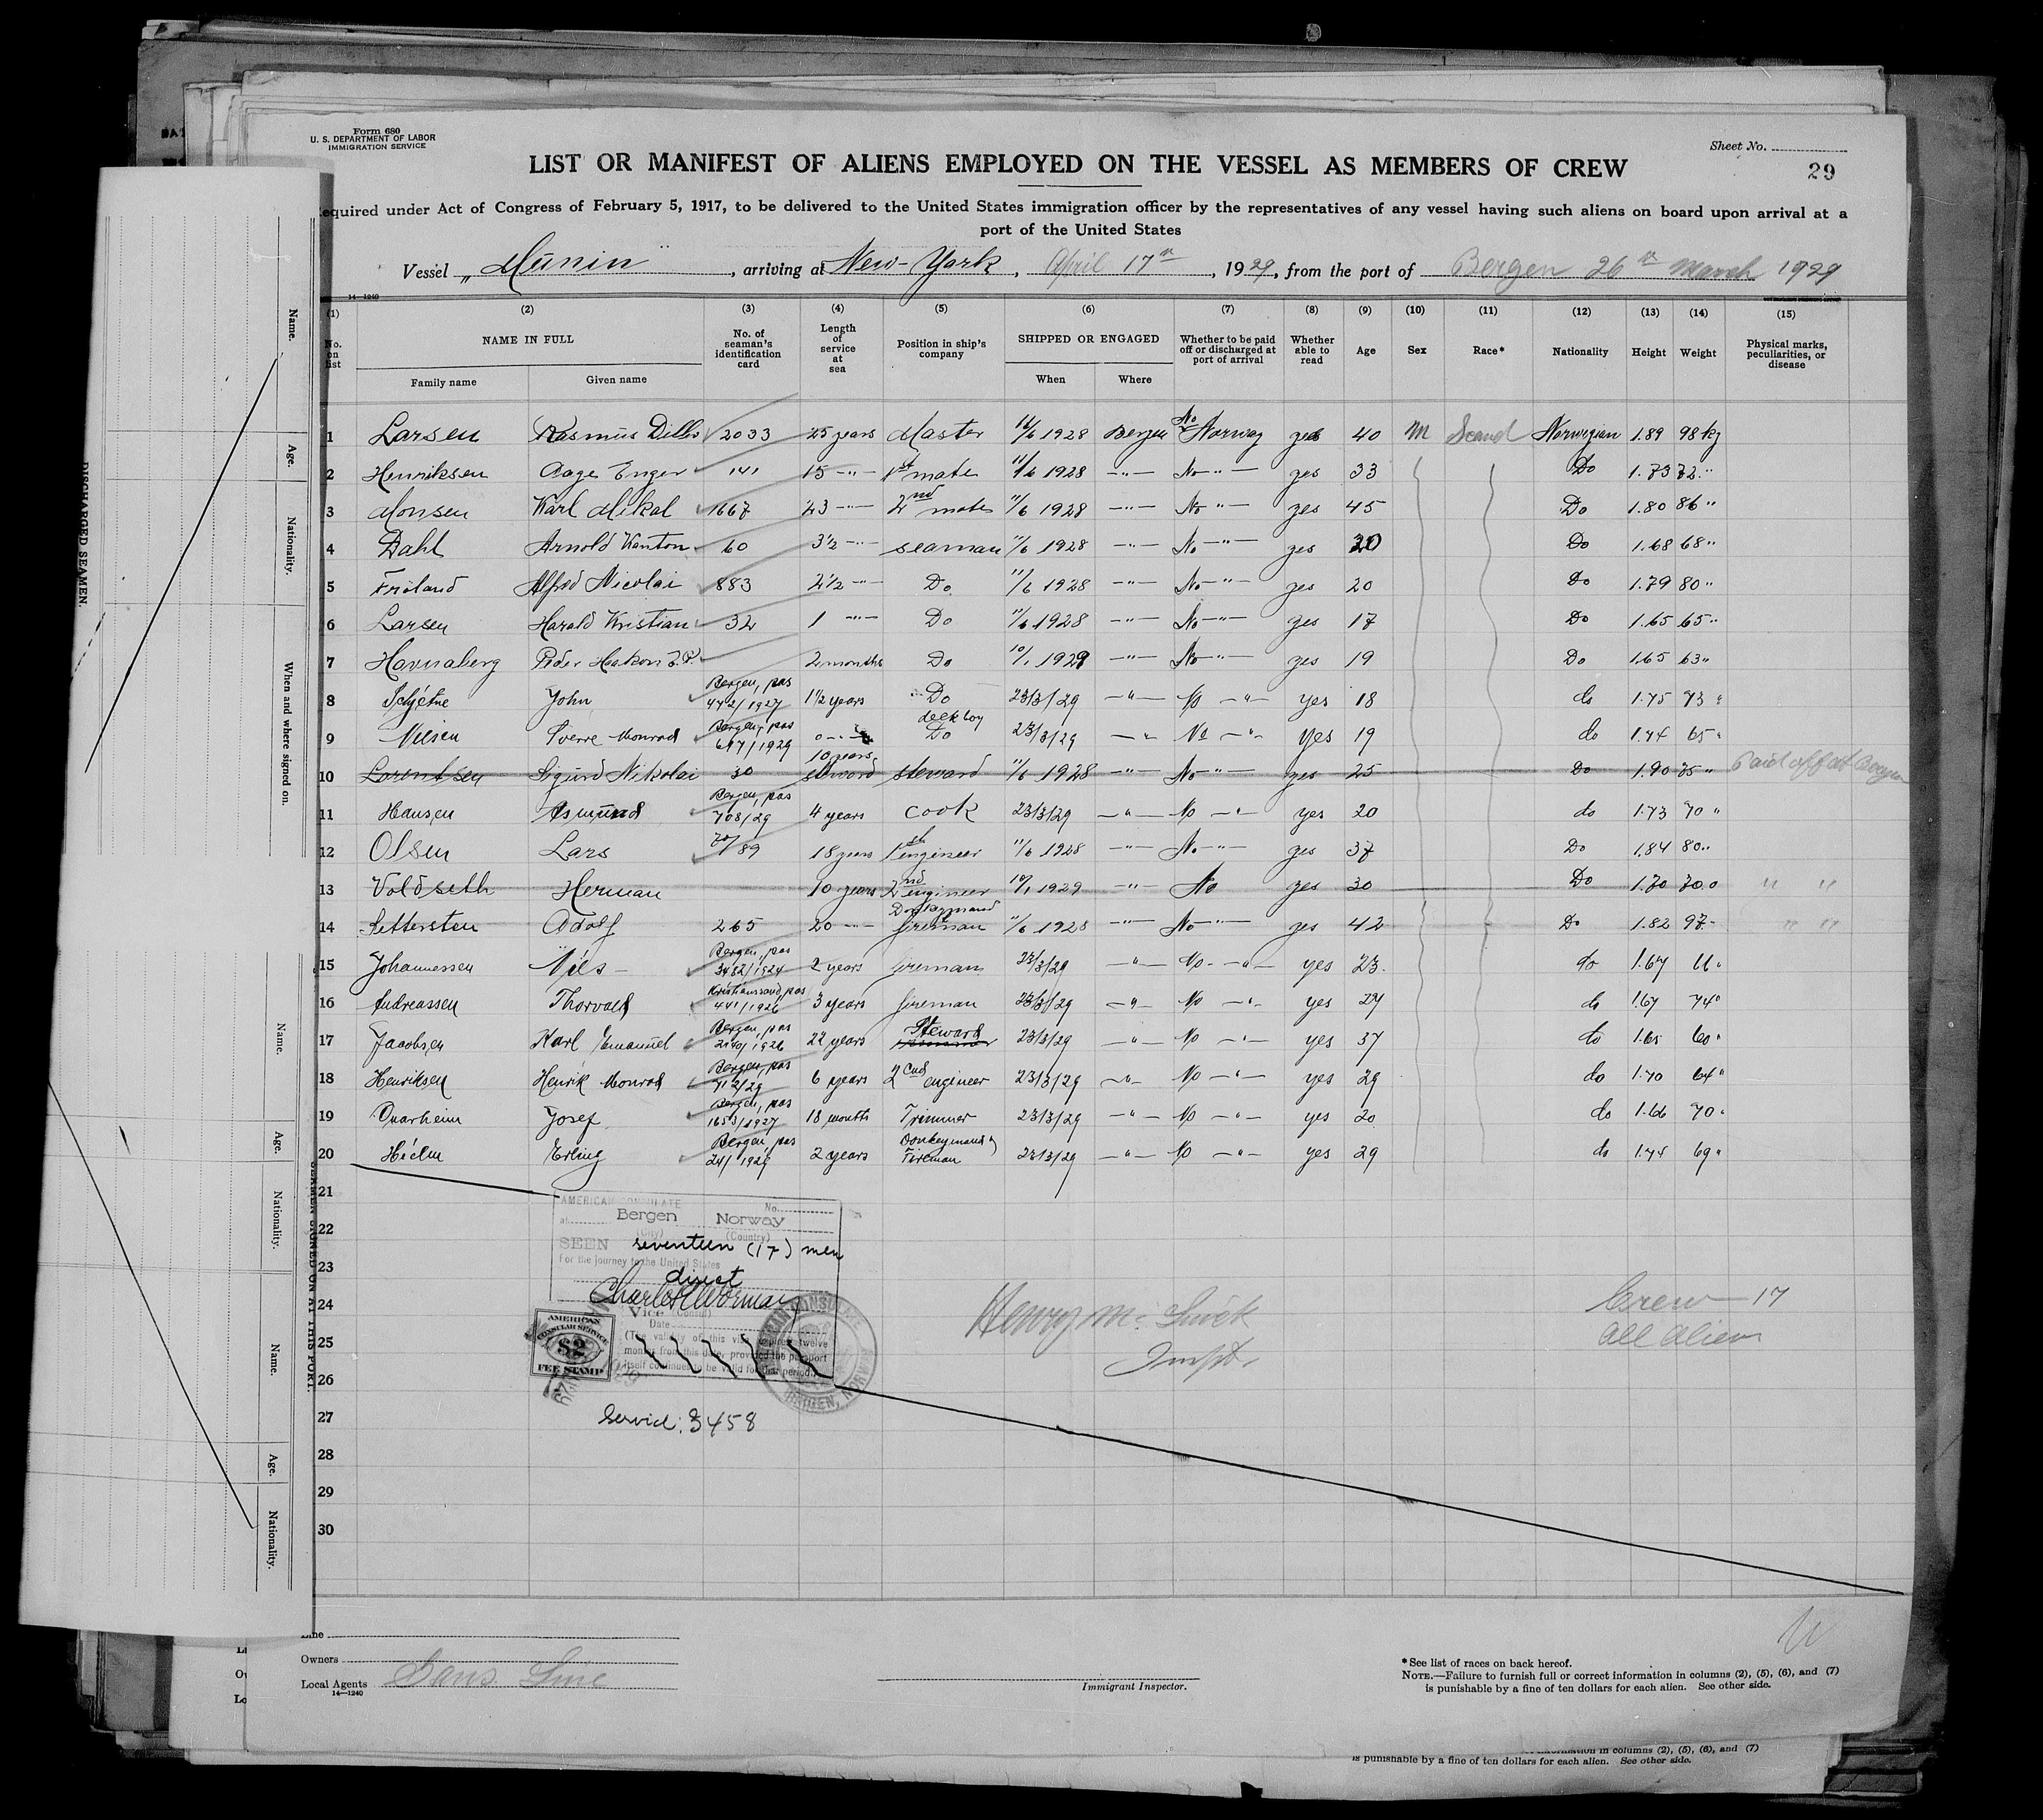 Form 680
U. S. DEPARTMENT OF LABOR
IMMIGRATION SERVICE
Sheet No.
29
LIST OR MANIFEST OF ALIENS EMPLOYED ON THE VESSEL AS MEMBERS OF CREW
equired under Act of Congress of February 5, 1917, to be delivered to the United States immigration officer by the representatives of any vessel having such aliens on board upon arrival at a
port of the United States
Vessel „Munin", arriving at New-York, April 17th, 1929, from the port of Bergen 26th March 1929
14—1240
(1) (2) (3) (4) (5) (6) (7) (8) (9) (10) (11) (12) (13) (14) (15)
No. on list
NAME IN FULL
Family name
Given name
No. of seaman's identification card
Length of service at sea
Position in ship's company
SHIPPED OR ENGAGED
When
Where
Whether to be paid off or discharged at port of arrival
Whether able to read
Age
Sex
Race*
Nationality
Height
Weight
Physical marks, peculiarities, or disease
1 Larsen Rasmus 2033 25 years Master 11/6 1928 Bergen No Norway yes 40 M Scand Norwegian 1.89 98 kg
2 Henriksen Aage Enger 141 15 -"- 1st mate 11/6 1928 -"- No -"- yes 33 Do 1.73 72 "
3 Monsen Karl Mikal 1667 23 -"- 2nd mate 11/6 1928 -"- No -"- yes 45 Do 1.80 86 "
4 Dahl Arnold 60 3½ -"- seaman 11/6 1928 -"- No -"- yes 20 Do 1.68 68 "
5 Fröland Alfred Nicolai 883 2½ -"- Do 11/6 1928 -"- No -"- yes 20 Do 1.79 80 "
6 Larsen Harald Kristian 32 1 -"- Do 11/6 1928 -"- No -"- yes 17 Do 1.65 65 "
7 Havnaberg Peder Hakon 2 months Do 10/1 1929 -"- No -"- yes 19 Do 1.65 63 "
8 John Bergen, pas 442/1927 1½ years Do 23/3/29 -"- No -"- yes 18 do 1.75 73 "
9 Nilsen Sverre Monrad Bergen, pas 647/1929 0 deckboy Do 23/3/29 -"- No -"- yes 19 do 1.74 65 "
10 Lorentsen Sigurd Nikolai 30 10 years steward steward 11/6 1928 -"- No -"- yes 25 Do 1.90 75 " Paid off at Bergen
11 Hansen Asmund Bergen, pas 708/29 4 years cook 23/3/29 -"- No -"- yes 20 do 1.73 70 "
12 Olsen Lars 70/89 18 years 1st engineer 11/6 1928 -"- No -"- yes 37 Do 1.84 80 "
13 Voldseth Herman 10 years 2nd engineer 10/1 1929 -"- No yes 30 Do 1.70 70 " " "
14 Settersten Adolf 265 20 -"- Donkeymand fireman 11/6 1928 -"- No -"- yes 42 Do 1.82 97 - " "
15 Johannessen Nils Bergen, pas 3482/1924 2 years fireman 23/3/29 -"- No -"- yes 23 do 1.67 66 "
16 Andreassen Thorvald Kristianssand, pas 441/1926 3 years fireman 23/3/29 -"- No -"- yes 27 do 1.67 74 "
17 Jacobsen Karl Emanuel Bergen, pas 2140/1926 22 years Steward 23/3/29 -"- No -"- yes 37 do 1.65 60 "
18 Henriksen Henrik Monrad Bergen, pas 712/29 6 years 2end engineer 23/3/29 -"- No -"- yes 29 do 1.70 64 "
19 Kvarheim Josef Bergen, pas 1653/1927 18 months Trimmer 23/3/29 -"- No -"- yes 20 do 1.66 70 "
20 Erling Bergen, pas 241/1929 2 years Donkeymand Fireman 23/3/29 -"- No -"- yes 29 do 1.74 69 "
21
22
23
24
25
26
27
28
29
30
AMERICAN CONSULATE
No.
at Bergen Norway
(City) (Country)
SEEN seventeen (17) men
For the journey to the United States
direct
Vice (Consul)
Date
(The validity of this visa expires twelve
months from this date, provided the passport
itself continues to be valid for that period.)
AMERICAN
CONSULAR SERVICE
$2
FEE STAMP
AMERICAN CONSULATE
BERGEN, NORWAY
Service: 3458
Henry Mc
Inspt.
Crew 17
all alien
Line
Owners
Local Agents
14—1240
Immigrant Inspector.
*See list of races on back hereof.
NOTE.—Failure to furnish full or correct information in columns (2), (5), (6), and (7)
is punishable by a fine of ten dollars for each alien. See other side.
information in columns (2), (5), (6), and (7)
is punishable by a fine of ten dollars for each alien. See other side.
DISCHARGED SEAMEN.
Name.
Age.
Nationality.
When and where signed on.
SEAMEN SIGNED ON AT THIS PORT.
Name.
Age.
Nationality.
Name.
Age.
Nationality.